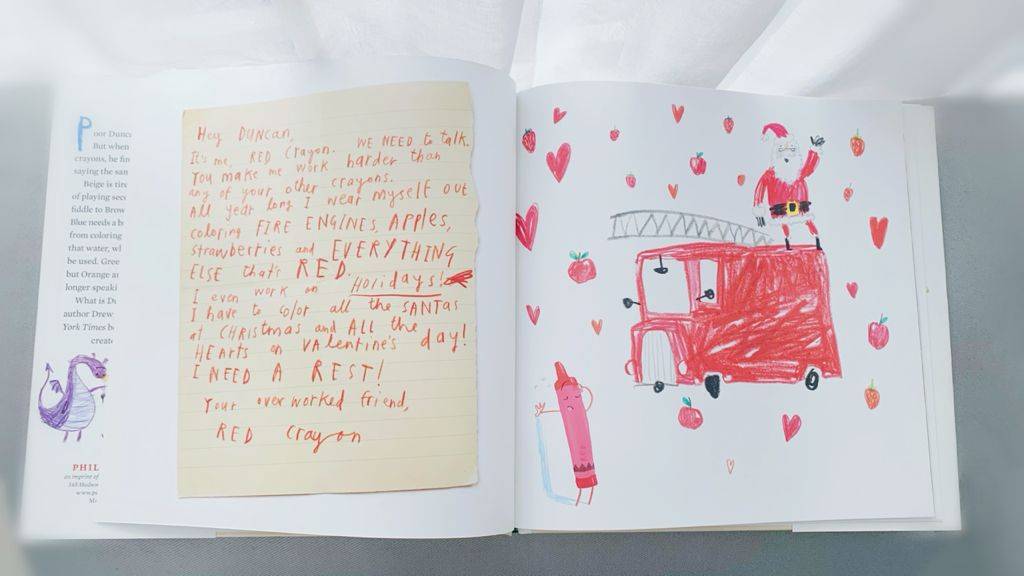 Poor Dunc
But when
crayons, he fin
saying the sam
Beige is tire
of playing sec
fiddle to Brow
Blue needs a b
from coloring
that water, wh
be used. Gree
but Orange an
longer speakin
What is Du
author Drew
York Times b
create
PHIL
an imprint of
345 Hudson
www.p
Hey DUNCAN,
It's me, RED Crayon. WE NEED to talk.
You make me work harder than
any of your other crayons.
All year long I wear myself out
coloring FIRE ENGINES, APPles,
strawberries and EVERYTHING
ELSE that's RED.
I even work on Holidays!
I have to color all the SANTAs
at CHRistmas and ALL the
HEARTS on VAlentine's day!
I NEED A REST!
Your overworked friend,
RED Crayon